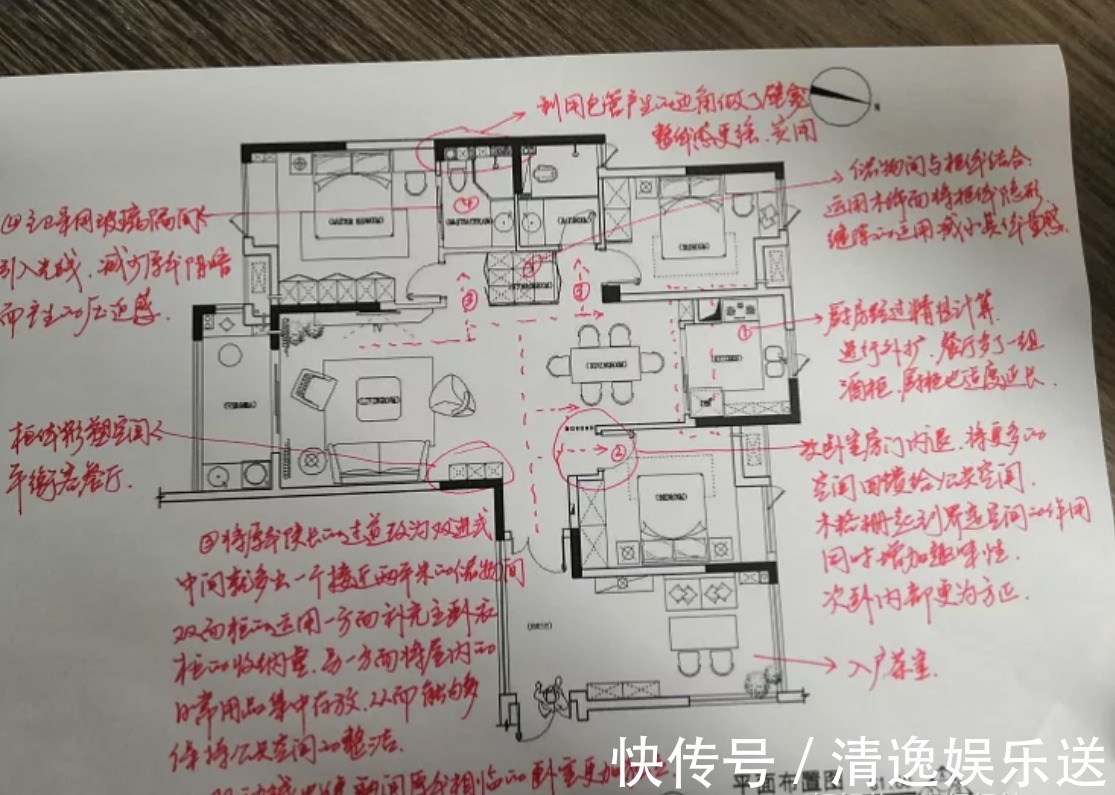 利用包管产生的边角做了壁龛
整体感更强、实用
N
储物间与柜体结合
运用木饰面将柜体隐形
缝隙的运用减小其体量感
④主卫采用玻璃隔间
引入光线、减少原本阴暗
而产生的压迫感.
①
②
③
③
④
TV
厨房经过精密计算
进行外扩、餐厅多了一组
酒柜、厨柜也适度延长.
柜体形塑空间
平衡客餐厅.
次卧室房门内退、将更多的
空间回馈给公共空间.
木格栅起到界定空间的作用
同时增加趣味性.
次卧内部更为方正.
③将原本狭长的过道改为双进式
中间就多出一个接近两平米的储物间
双面柜的运用一方面补充主卧衣
柜的收纳量.另一方面将屋内的
日常用品集中存放.从而能够多
保持公共空间的整洁.
入户茶室.
两间原本相临的卧室更加
平面布置图
快传号 / 清逸娱乐送